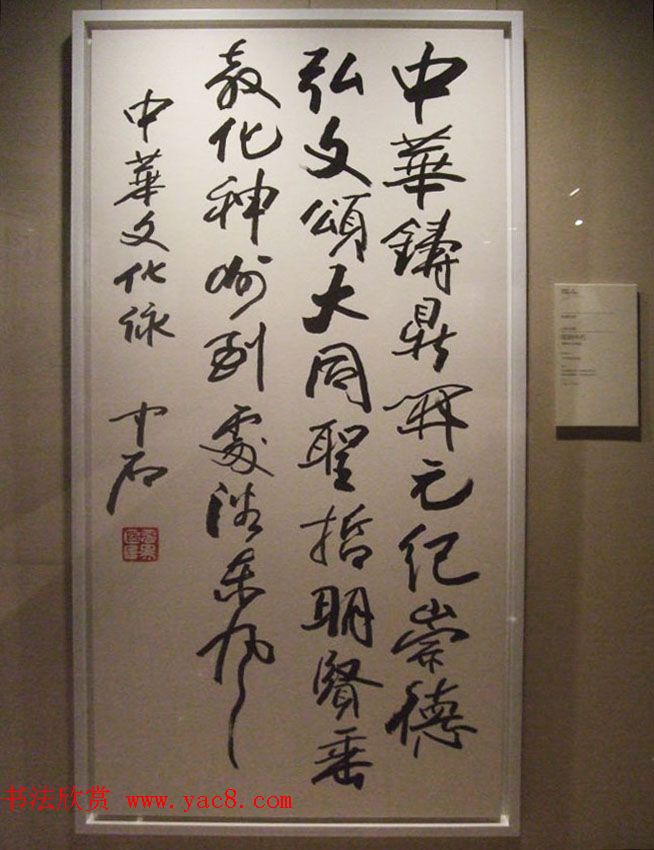 中華鑄鼎開元紀崇德
弘文頌大同聖哲明賢垂
教化神州到處浴東風
中華文化詠 中石
书法欣赏 www.yac8.com